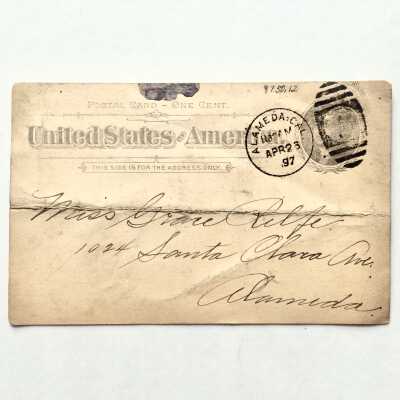 97.50.12
POSTAL CARD — ONE CENT.
United States of America
THIS SIDE IS FOR THE ADDRESS ONLY.
ALAMEDA. CAL.
APR 23
97
Miss Grace Relfe.
1024 Santa Clara Ave.
Alameda.